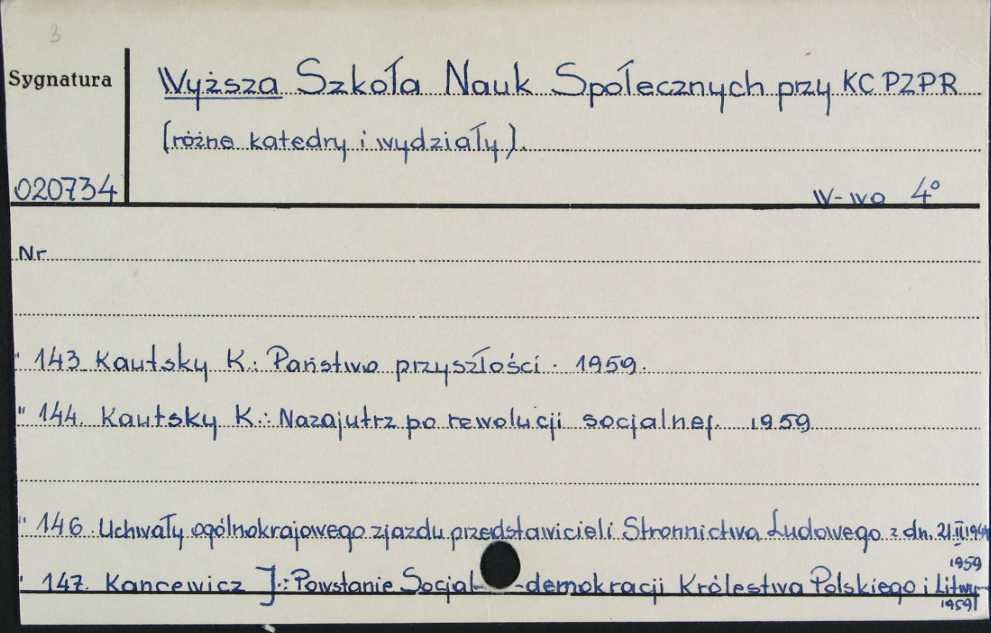 3
Sygnatura
Wyższa Szkoła Nauk Społecznych przy KC PZPR
(różne katedry i wydziały).
020734
W-wa 4°
Nr
" 143 Kautsky K.: Państwo przyszłości. 1959.
" 144. Kautsky K.: Nazajutrz po rewolucji socjalnej. 1959
" 146. Uchwały ogólnokrajowego zjazdu przedstawicieli Stronnictwa Ludowego z dn. 21.II.1944
1959
" 147. Kancewicz J.: Powstanie Socjal-demokracji Królestwa Polskiego i Litwy
1959